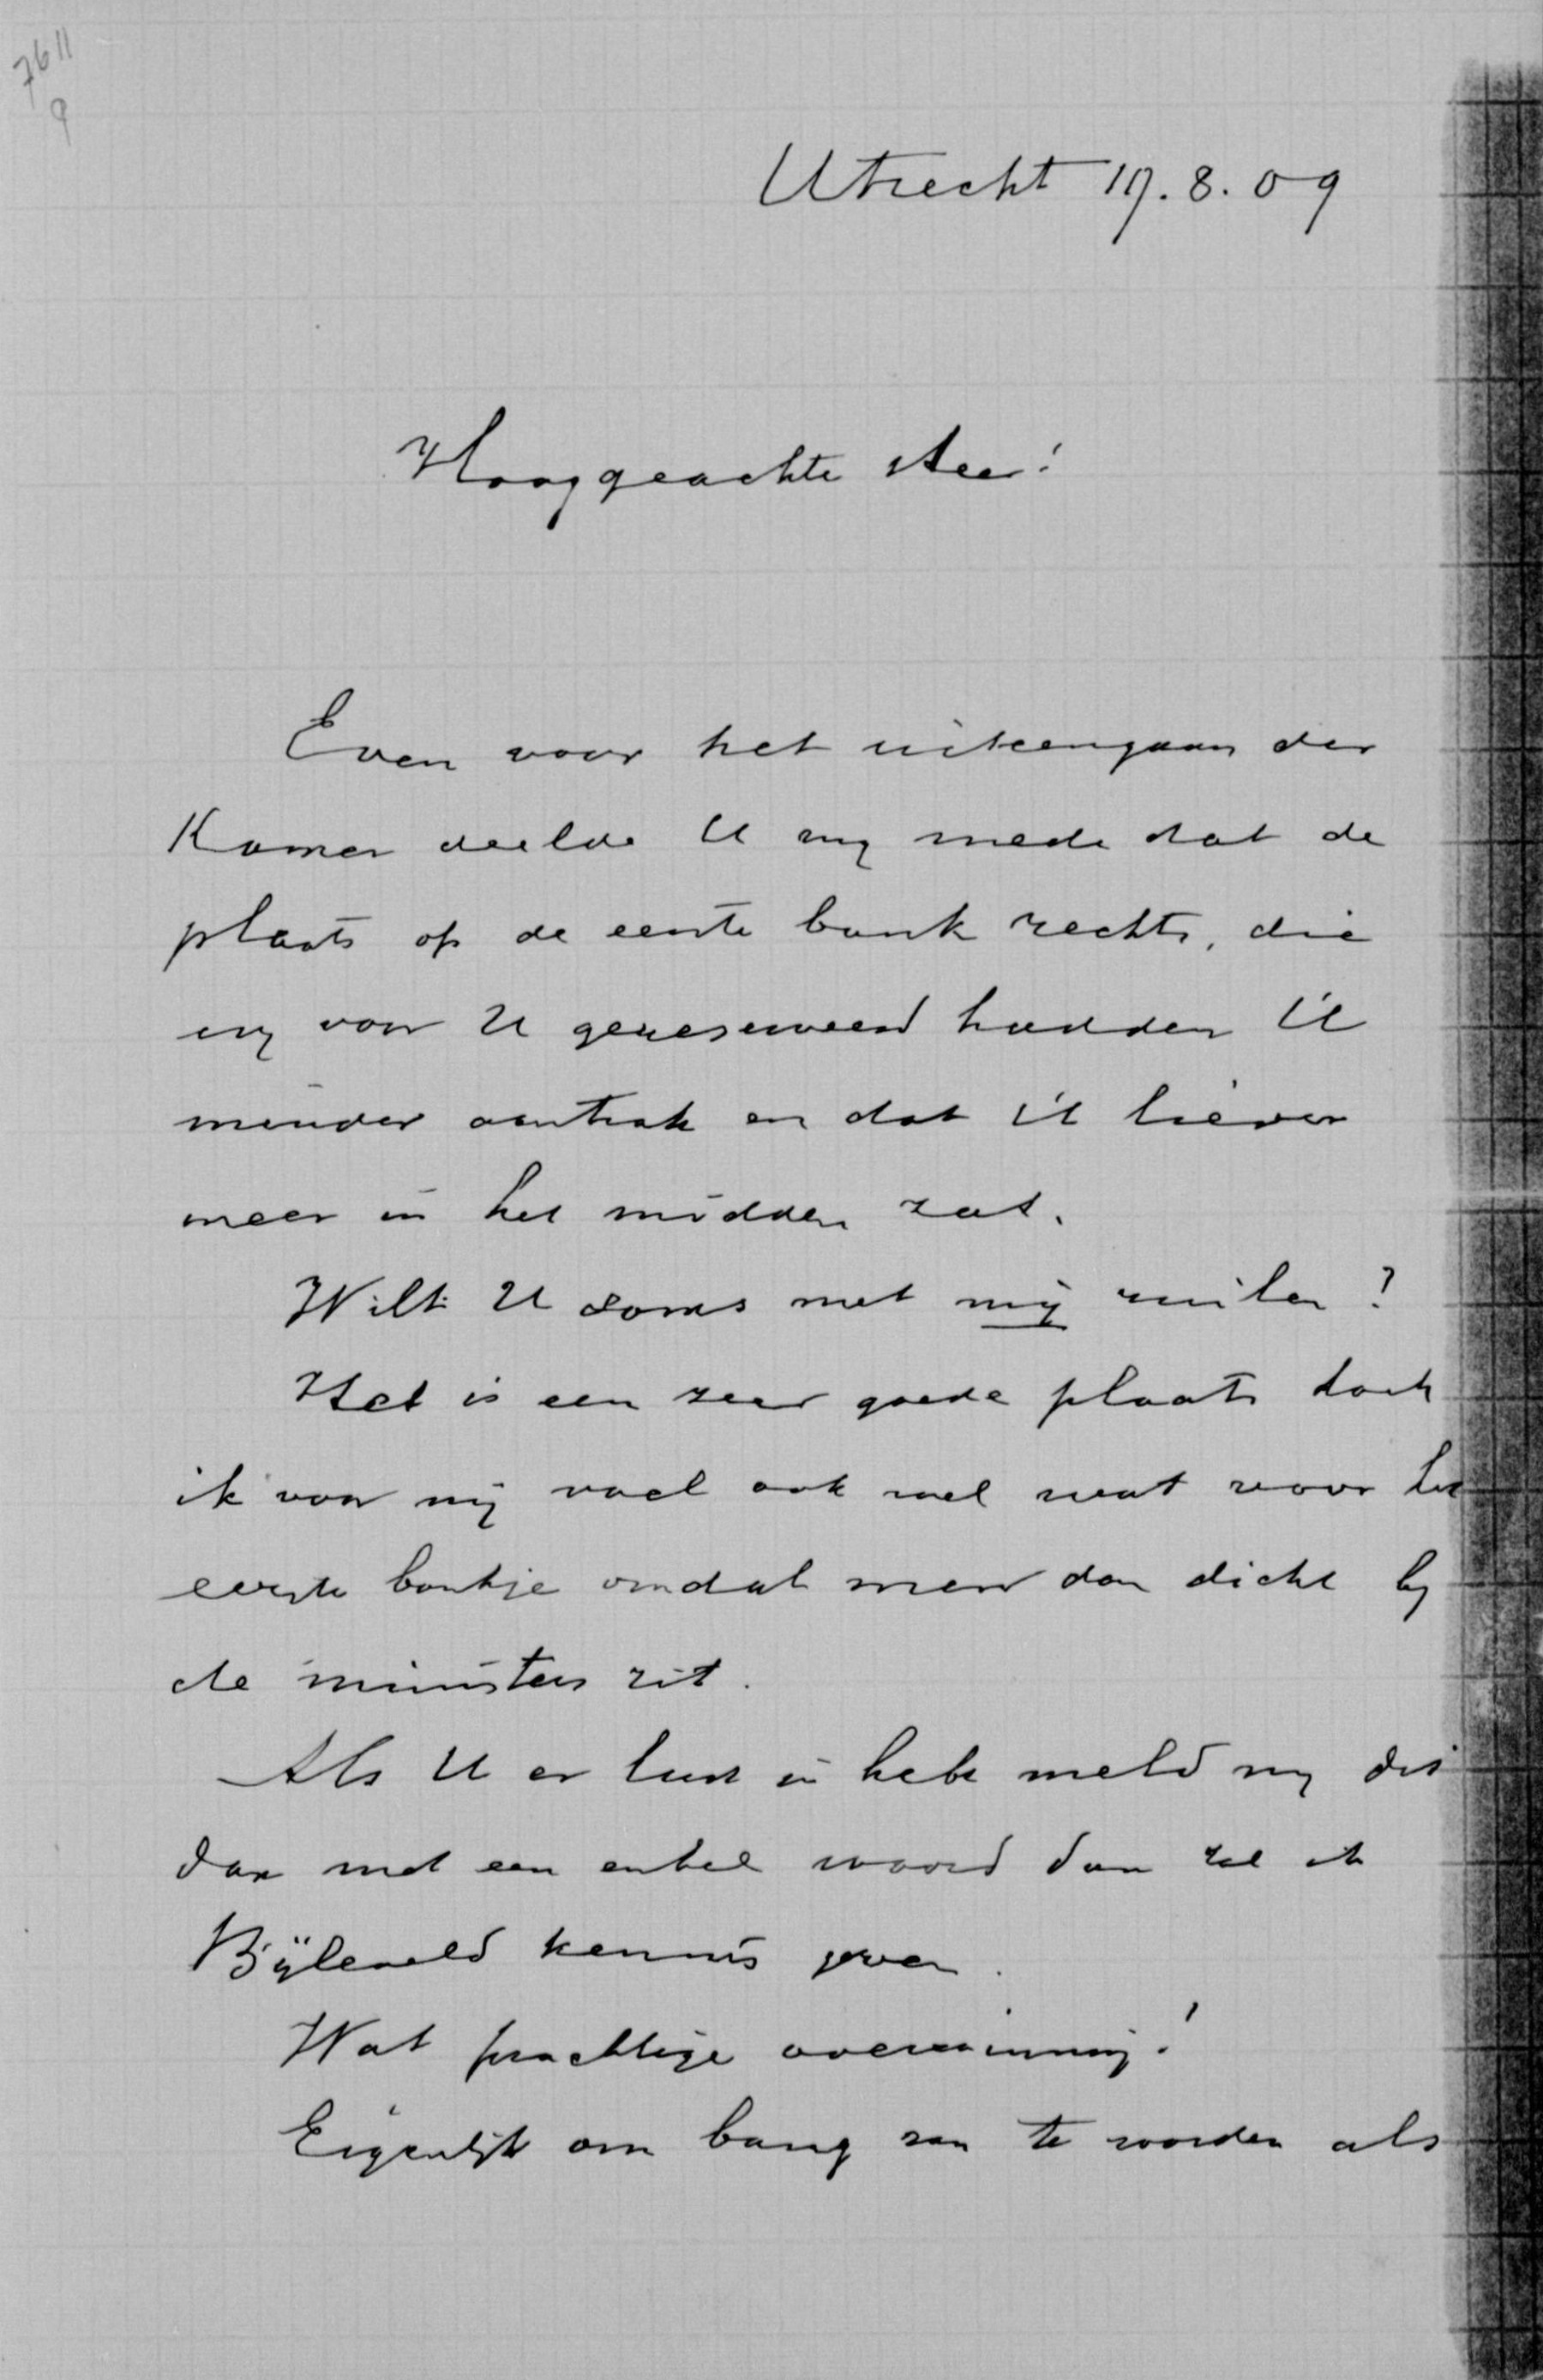 7611
9
Utrecht 19.8.09
Hooggeachte Heer!
Even voor het uiteengaan der
Kamer deelde U mij mede dat de
plaats op de eerste bank rechts, die
wij voor U gereserveerd hadden U
minder aantrok en dat U liever
meer in het midden zat.
Wilt U soms met mij ruilen?
Het is een zeer goede plaats doch
ik voor mij voel ook wel wat voor het
eerste bankje omdat men dan dicht bij
de ministers zit.
Als U er lust in hebt meld mij dit
dan met een enkel woord dan zal ik
Bijleveld kennis geven.
Wat prachtige overwinning!
Eigenlijk om bang van te worden als